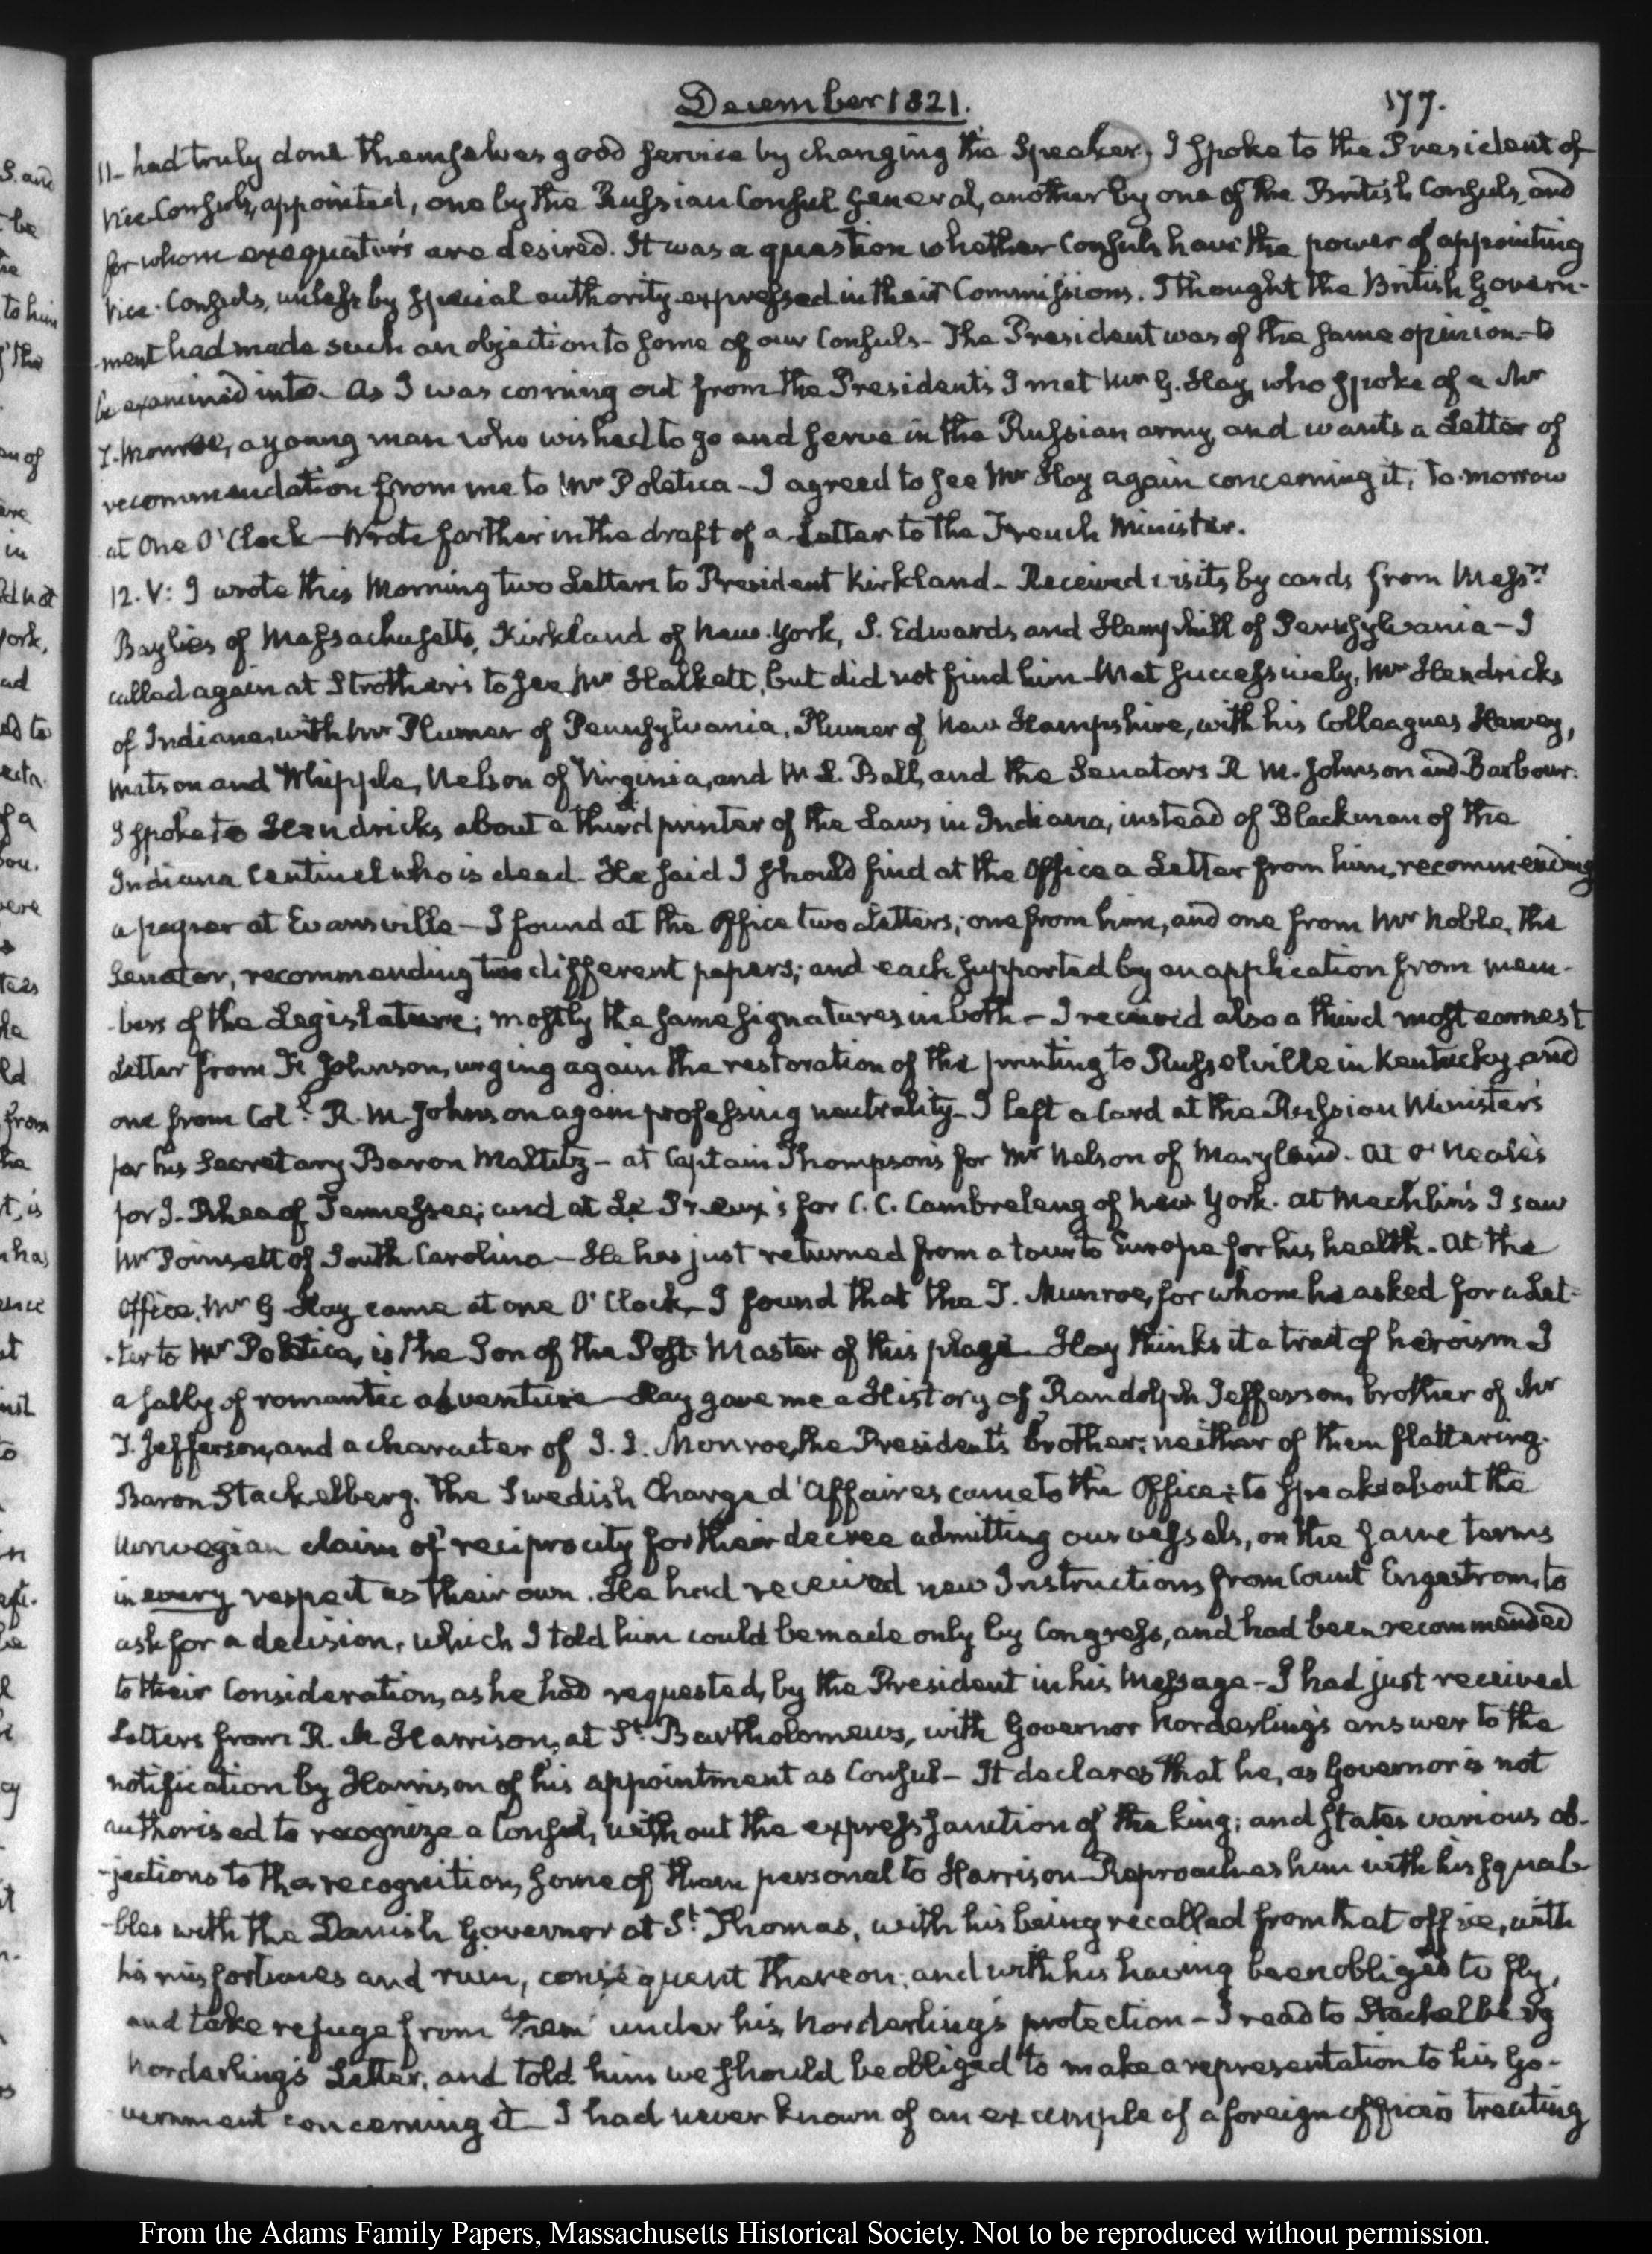 December 1821.
177.
11- had truly done themselves good service by changing the Speaker, I spoke to the President of
Vice-Consuls, appointed, one by the Russian Consul General, another by one of the British Consuls, and
for whom exequaturs are desired. It was a question whether Consuls have the power of appointing
Vice-Consuls, unless by special authority expressed in their Commissions. I thought the British Govern-
-ment had made such an objection to some of our Consuls- The President was of the same opinion- to
be examined into. As I was coming out from the Presidents I met Mr G. Hay, who spoke of a Mr
T. Monroe, a young man who wished to go and serve in the Russian army, and wants a Letter of
recommendation from me to Mr Poletica- I agreed to see Mr Hay again concerning it, to-morrow
at One O'Clock- Wrote further in the draft of a Letter to the French Minister.
12. V: I wrote this Morning two Letters to President Kirkland- Received visits by cards from Messrs
Baylies of Massachusetts, Kirkland of New-York, S. Edwards and Hemphill of Pennsylvania- I
called again at Strother's to see Mr Halkett, but did not find him- Met successively, Mr Hendricks
of Indiana, with Mr Plumer of Pennsylvania, Plumer of New Hampshire, with his Colleagues Harvey,
Matson and Whipple, Nelson of Virginia, and W. L. Ball, and the Senators R M. Johnson and Barbour.
I spoke to Hendricks about a third printer of the Laws in Indiana, instead of Blackman of the
Indiana Centinel who is dead. He said I should find at the Office a Letter from him, recommending
a paper at Evansville- I found at the Office two Letters; one from him, and one from Mr Noble, the
Senator, recommending two different papers; and each supported by an application from mem-
-bers of the Legislature; mostly the same signatures in both- I received also a third most earnest
Letter from F. Johnson, urging again the restoration of the printing to Russelville in Kentucky, and
one from Coll. R. M. Johnson again professing neutrality- I left a Card at the Russian Minister's
for his Secretary Baron Maltitz- at Captain Thompson's for Mr Nelson of Maryland- at O'Neale's
for J. Rhea of Tennessee; and at Le Treux's for C. C. Cambreleng of New York. at Mechlin's I saw
Mr Poinsett of South Carolina- He has just returned from a tour to Europe for his health- At the
Office, Mr G. Hay came at one O'Clock- I found that the T. Munroe, for whom he asked for a Let-
-ter to Mr Poletica, is the Son of the Post-Master of this place- Hay thinks it a trait of heroism- I
a sally of romantic adventure- Hay gave me a History of Randolph Jefferson, brother of Mr
T. Jefferson, and a character of J. J. Monroe, the President's brother; neither of them flattering.
Baron Stackelberg, the Swedish Charge d'Affaires came to the Office; to speak about the
Norwegian claim of reciprocity for their decree admitting our vessels, on the same terms
in every respect as their own. He had received new Instructions from Count Engestrom, to
ask for a decision, which I told him could be made only by Congress, and had been recommended
to their Consideration, as he had requested, by the President in his Message- I had just received
Letters from R. M. Harrison, at St. Bartholomews, with Governor Norderling's answer to the
notification by Harrison of his appointment as Consul- It declares that he, as Governor is not
authorised to recognize a Consul, without the express sanction of the king; and states various ob-
-jections to the recognition, some of them personal to Harrison- Reproaches him with his squab-
-bles with the Danish Governor at St. Thomas, with his being recalled from that office, with
his misfortunes and ruin, consequent thereon; and with his having been obliged to fly,
and take refuge from them under his, Norderling's protection- I read to Stackelberg
Norderling's Letter, and told him we should be obliged to make a representation to his Go-
-vernment concerning it- I had never known of an example of a foreign officer's treating
From the Adams Family Papers, Massachusetts Historical Society. Not to be reproduced without permission.